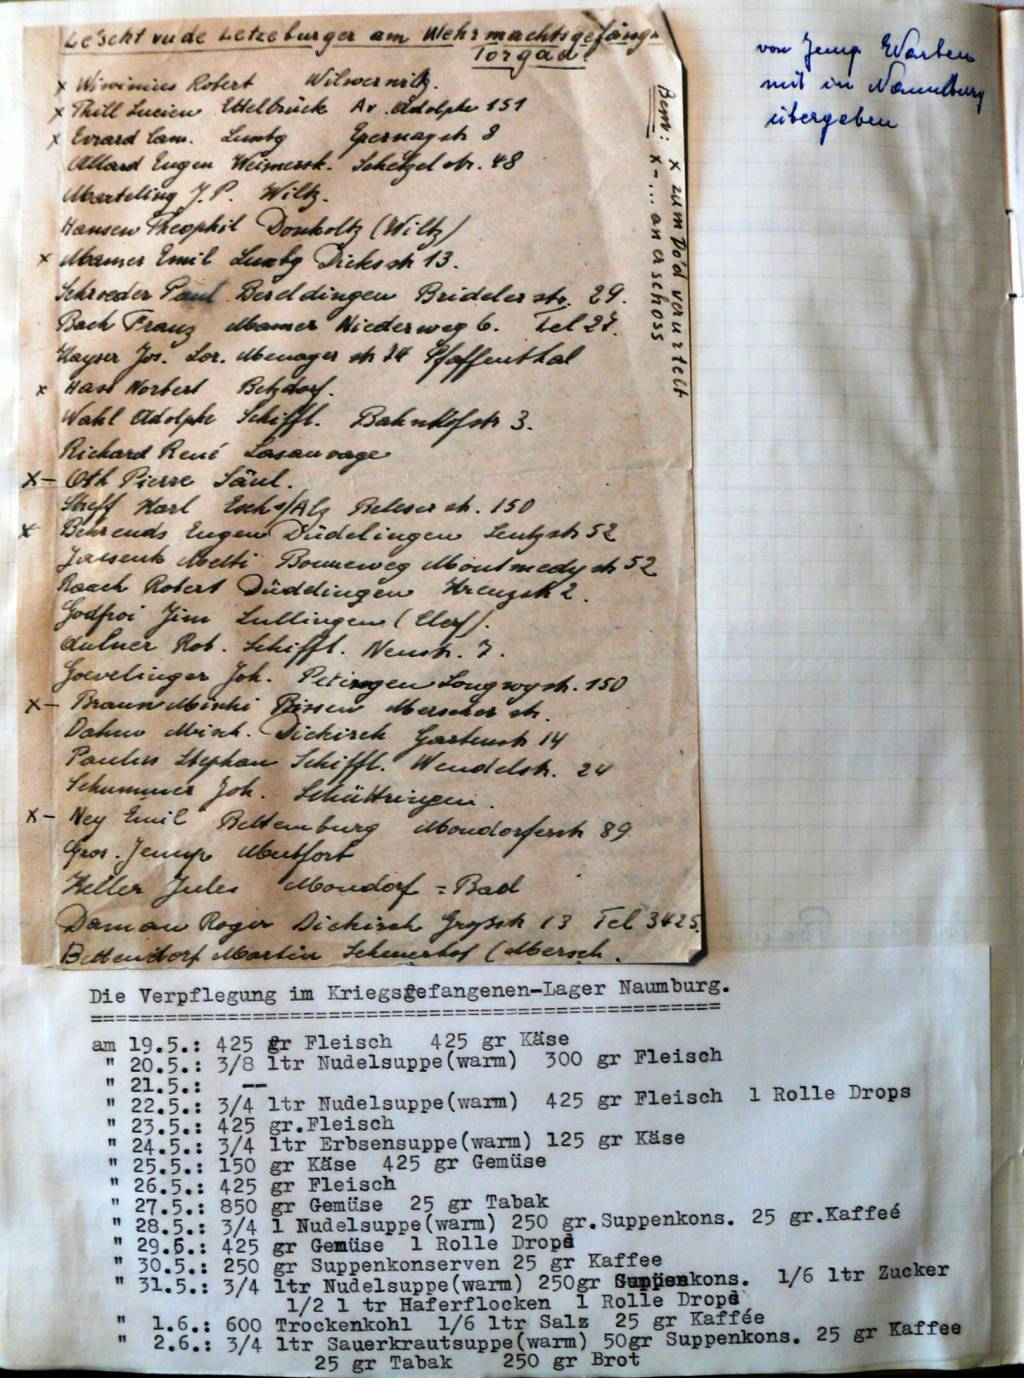 Lëscht vu de Letzeburger am Wehrmachtsgefäng.
Torgau!
x Wiwinius Robert Wilwerwiltz.
x Thill Lucien Ettelbrück Av. Adolphe 151
x Evrard Cam. Luxbg Epernaystr 8
Allard Eugen Weimersk. Schetzel str. 48
Marteling J.P. Wiltz.
Hansen Theophil Donkoltz (Wiltz)
x Mamer Emil Luxbg Dicksstr 13.
Schroeder Paul Bereldingen Brideler str. 29.
Bach Franz Mamer Niederweg 6. Tel 27.
Kayser Jos. Lor. Menager str 34 Pfaffenthal
x Hass Norbert Betzdorf.
Wahl Adolphe Schiffl. Bahnhofstr 3.
Richard René Lasauvage
x- Oth Pierre Säul.
Steff Karl Esch s/Alz Beleser str. 150
x Behrends Eugen Düdelingen Lentzstr 52
Metti Bonneweg Montmedy str 52
Raach Robert Düdelingen Kreuzstr 2.
Godfroi Jim Lullingen (Clerf).
Aulner Rob. Schiffl. Neustr. 7.
Goevelinger Joh. Petingen Longwystr. 150
x- Braun Mischi Bissen Merscher str.
Dahm Misch. Diekirch Gartenstr 14
Paulus Stephan Schiffl. Wendelstr. 24
Schummer Joh. Schüttringen.
x- Ney Emil Bettemburg Mondorferstr 89
Gros. Jemp Mutfort
Keller Jules Mondorf = Bad
Daman Roger Diekirch Grosstr 13 Tel 3425
Bettendorf Martin Scheuerhof (Mersch.
Bem: x zum Do'd verurtelt
x-... an erschoss
von Jemp Warken
mit in Naumburg
übergeben
Die Verpflegung im Kriegsgefangenen-Lager Naumburg.
am 19.5.: 425 gr Fleisch 425 gr Käse
" 20.5.: 3/8 ltr Nudelsuppe(warm) 300 gr Fleisch
" 21.5.: --
" 22.5.: 3/4 ltr Nudelsuppe(warm) 425 gr Fleisch 1 Rolle Drops
" 23.5.: 425 gr.Fleisch
" 24.5.: 3/4 ltr Erbsensuppe(warm) 125 gr Käse
" 25.5.: 150 gr Käse 425 gr Gemüse
" 26.5.: 425 gr Fleisch
" 27.5.: 850 gr Gemüse 25 gr Tabak
" 28.5.: 3/4 l Nudelsuppe(warm) 250 gr.Suppenkons. 25 gr.Kaffeé
" 29.5.: 425 gr Gemüse 1 Rolle Drops
" 30.5.: 250 gr Suppenkonserven 25 gr Kaffee
" 31.5.: 3/4 ltr Nudelsuppe(warm) 250gr Suppenkons. 1/6 ltr Zucker
1/2 l tr Haferflocken 1 Rolle Drops
" 1.6.: 600 Trockenkohl 1/6 ltr Salz 25 gr Kaffée
" 2.6.: 3/4 ltr Sauerkrautsuppe(warm) 50gr Suppenkons. 25 gr Kaffee
25 gr Tabak 250 gr Brot